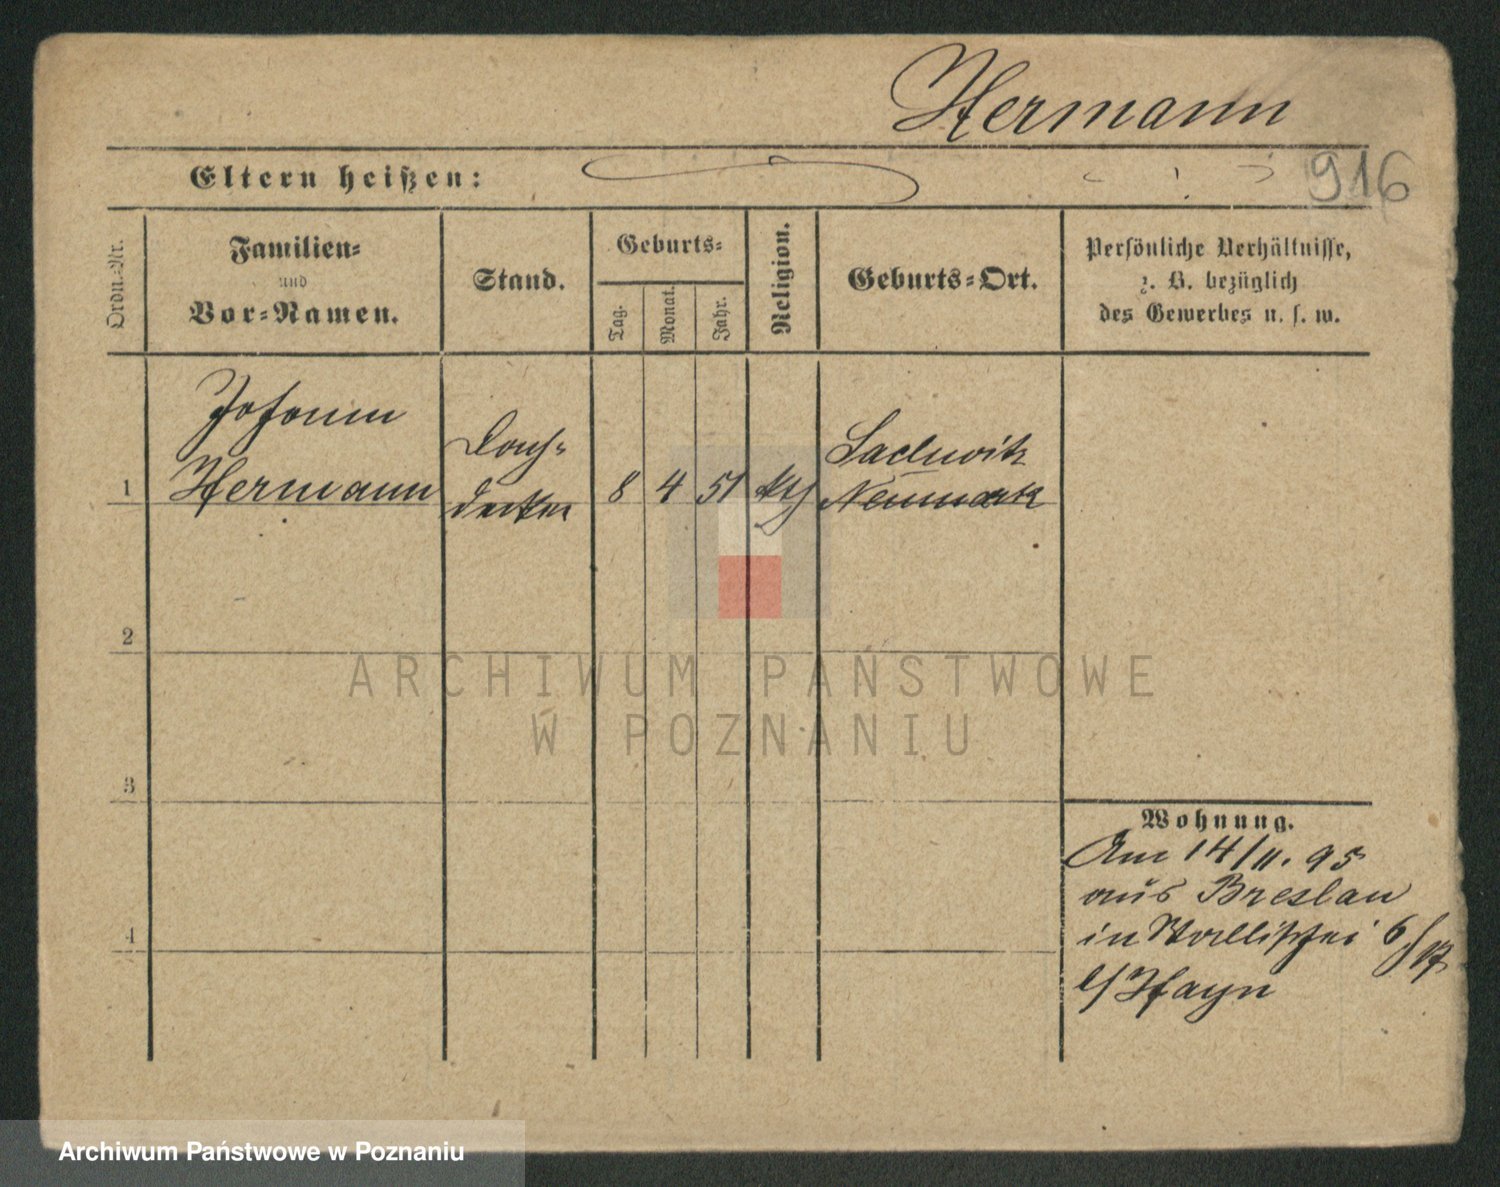 Hermann
916
Eltern heißen:
Ordn.-Nr.
Familien-
und
Vor-Namen.
Stand.
Geburts-
Tag.
Monat.
Jahr.
Religion.
Geburts-Ort.
Persönliche Verhältnisse,
z. B. bezüglich
des Gewerbes u. s. w.
Johann
Hermann
Dach-
decker
1
8
4
51
kth
Sackwitz
Neumark
2
3
4
Wohnung.
Am 14/11. 95
aus Breslau
in 6/17
b/ Hayn
ARCHIWUM PAŃSTWOWE
W POZNANIU
Archiwum Państwowe w Poznaniu